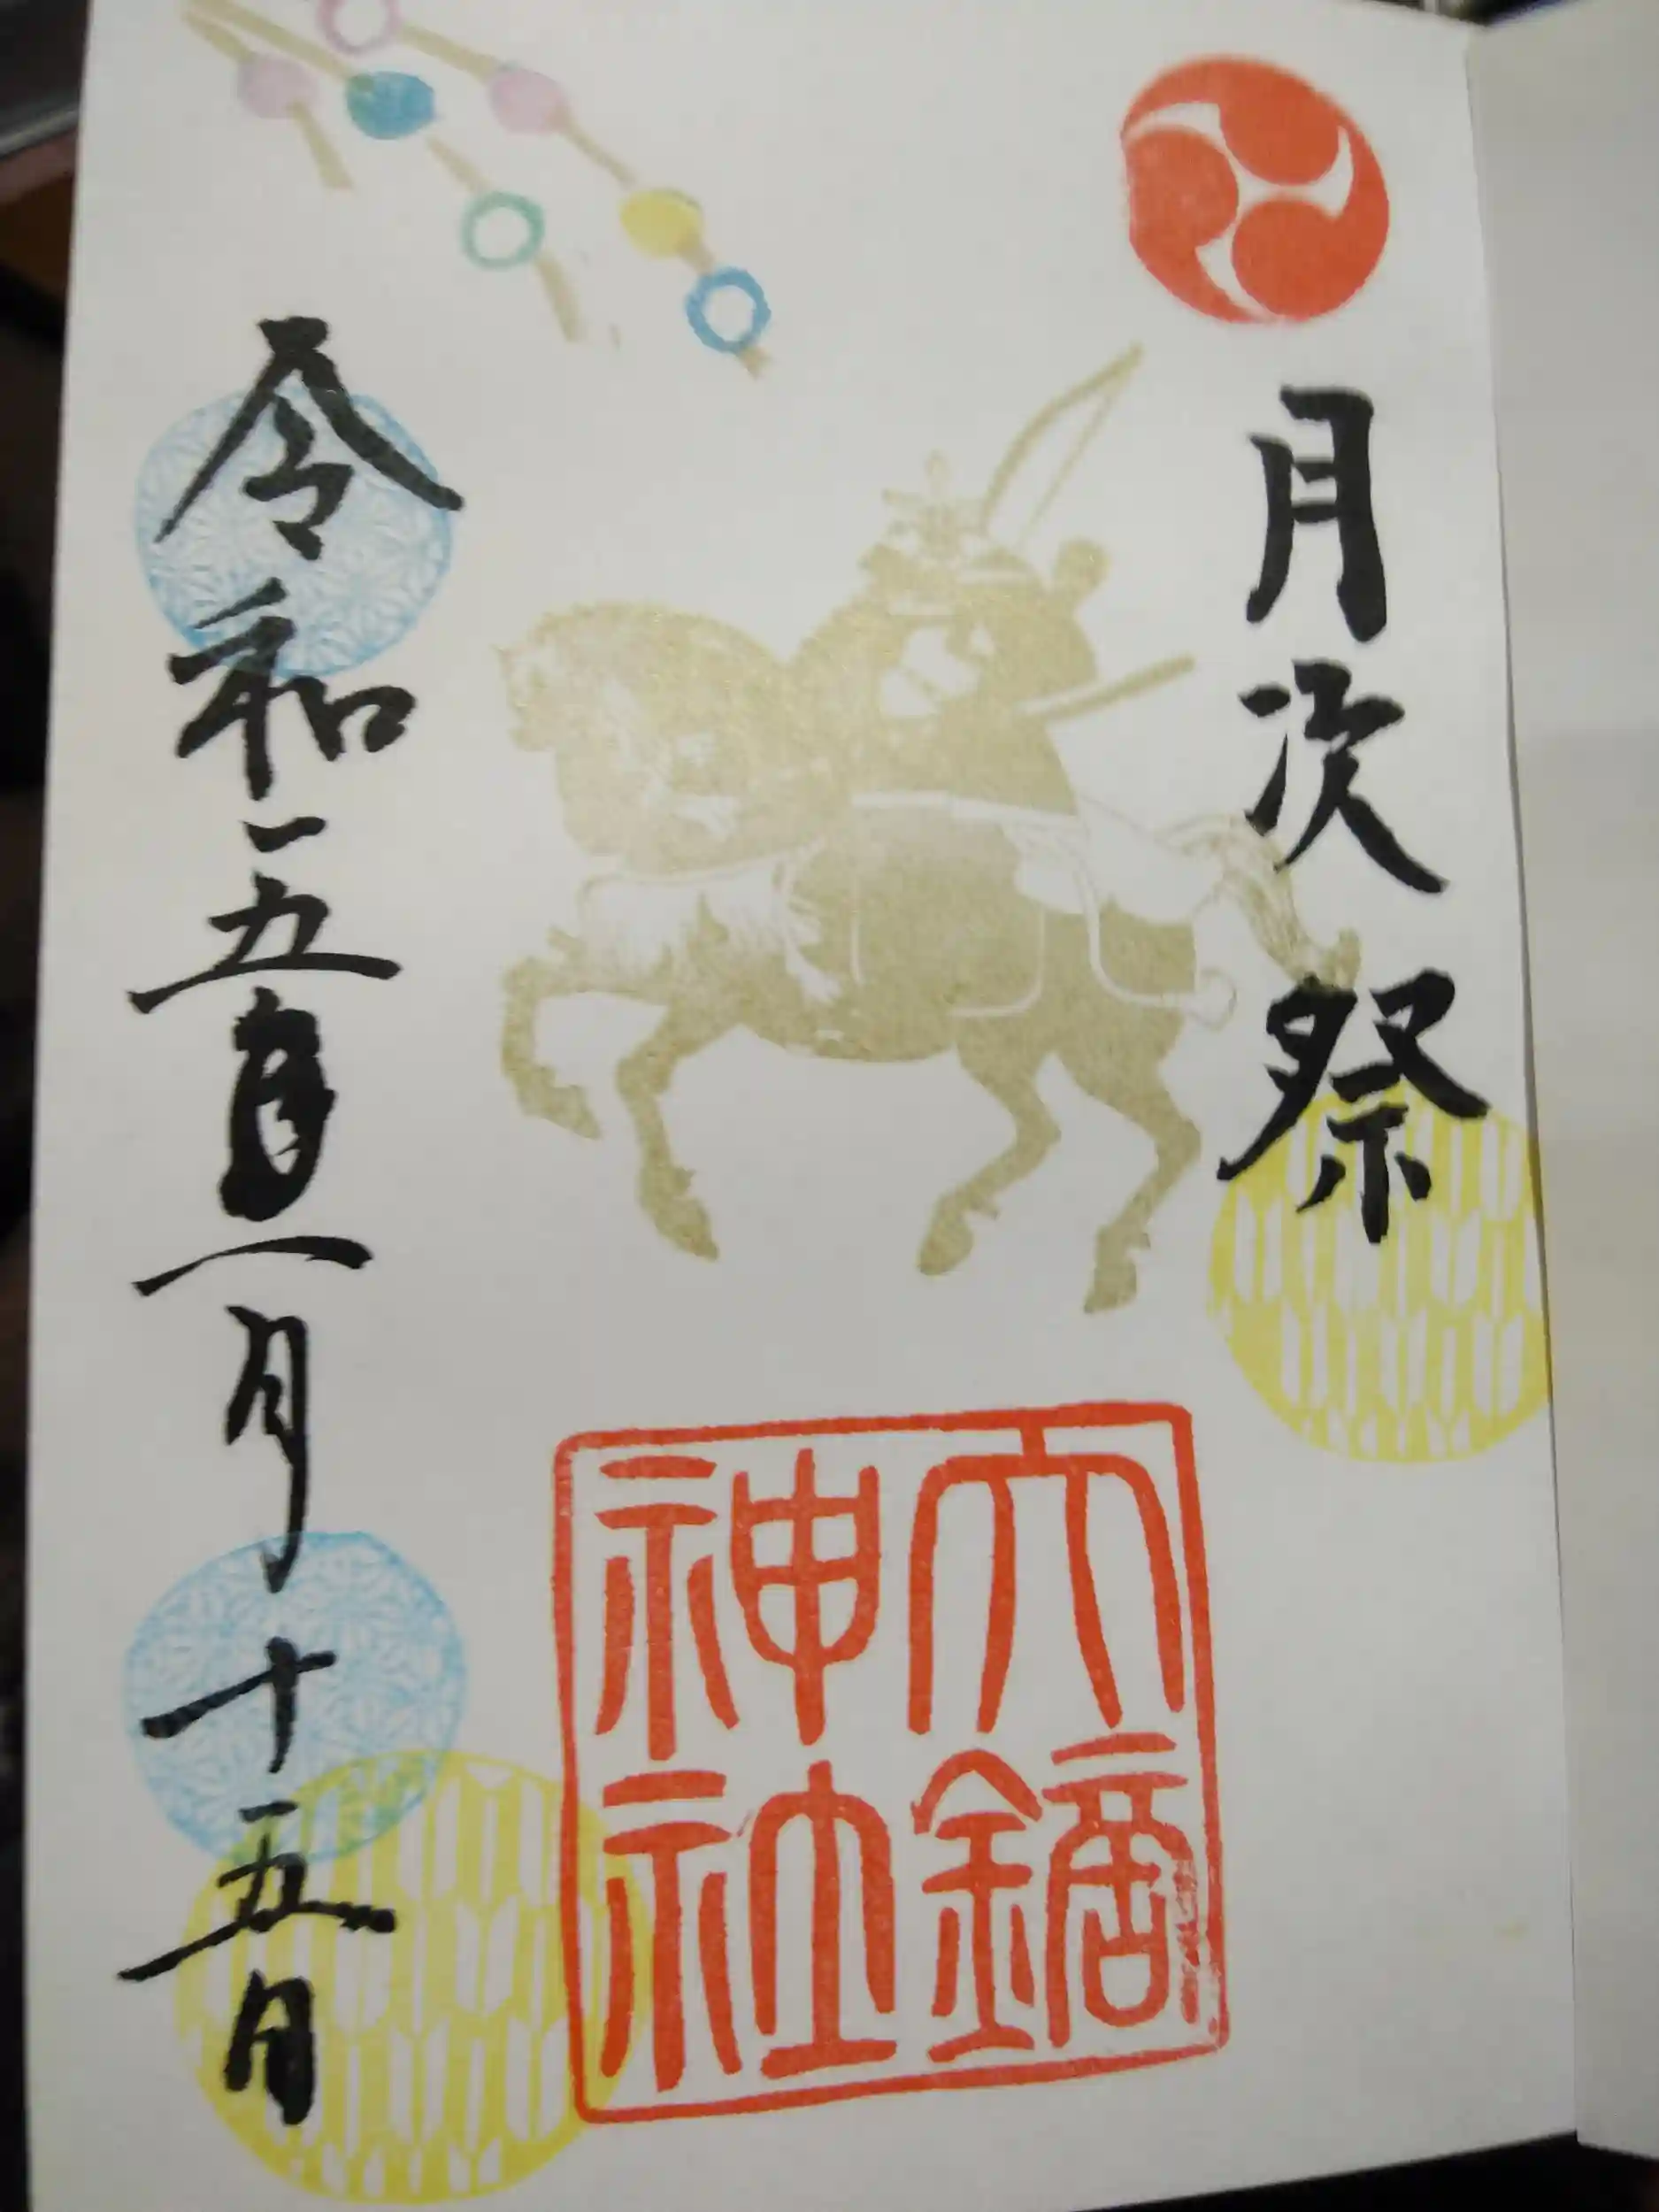 月次祭
大鏑
神社
令和五年一月十五日